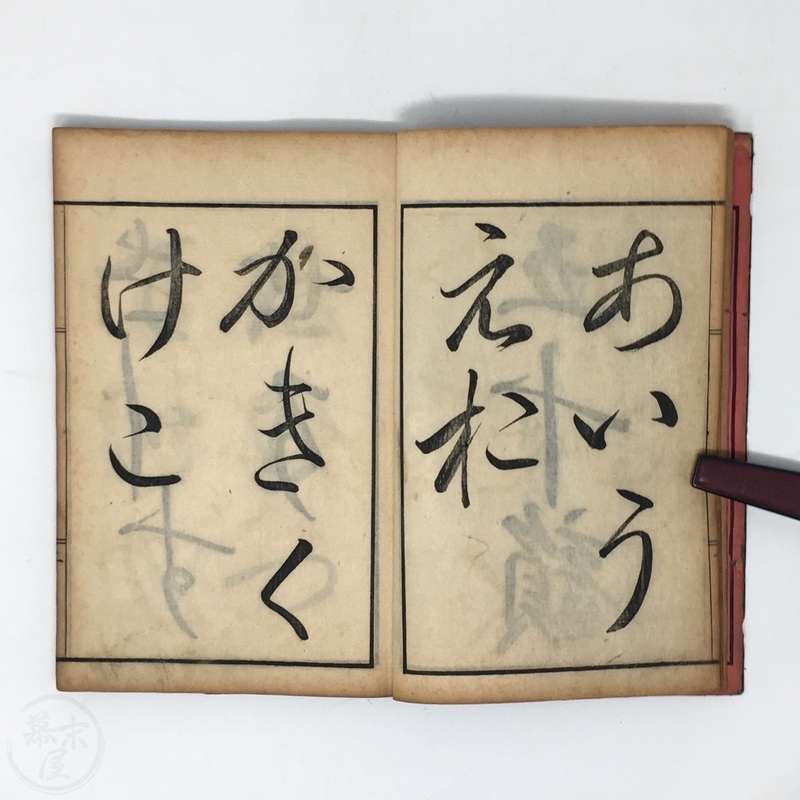 あいう
えお
かきく
けこ
幕末屋